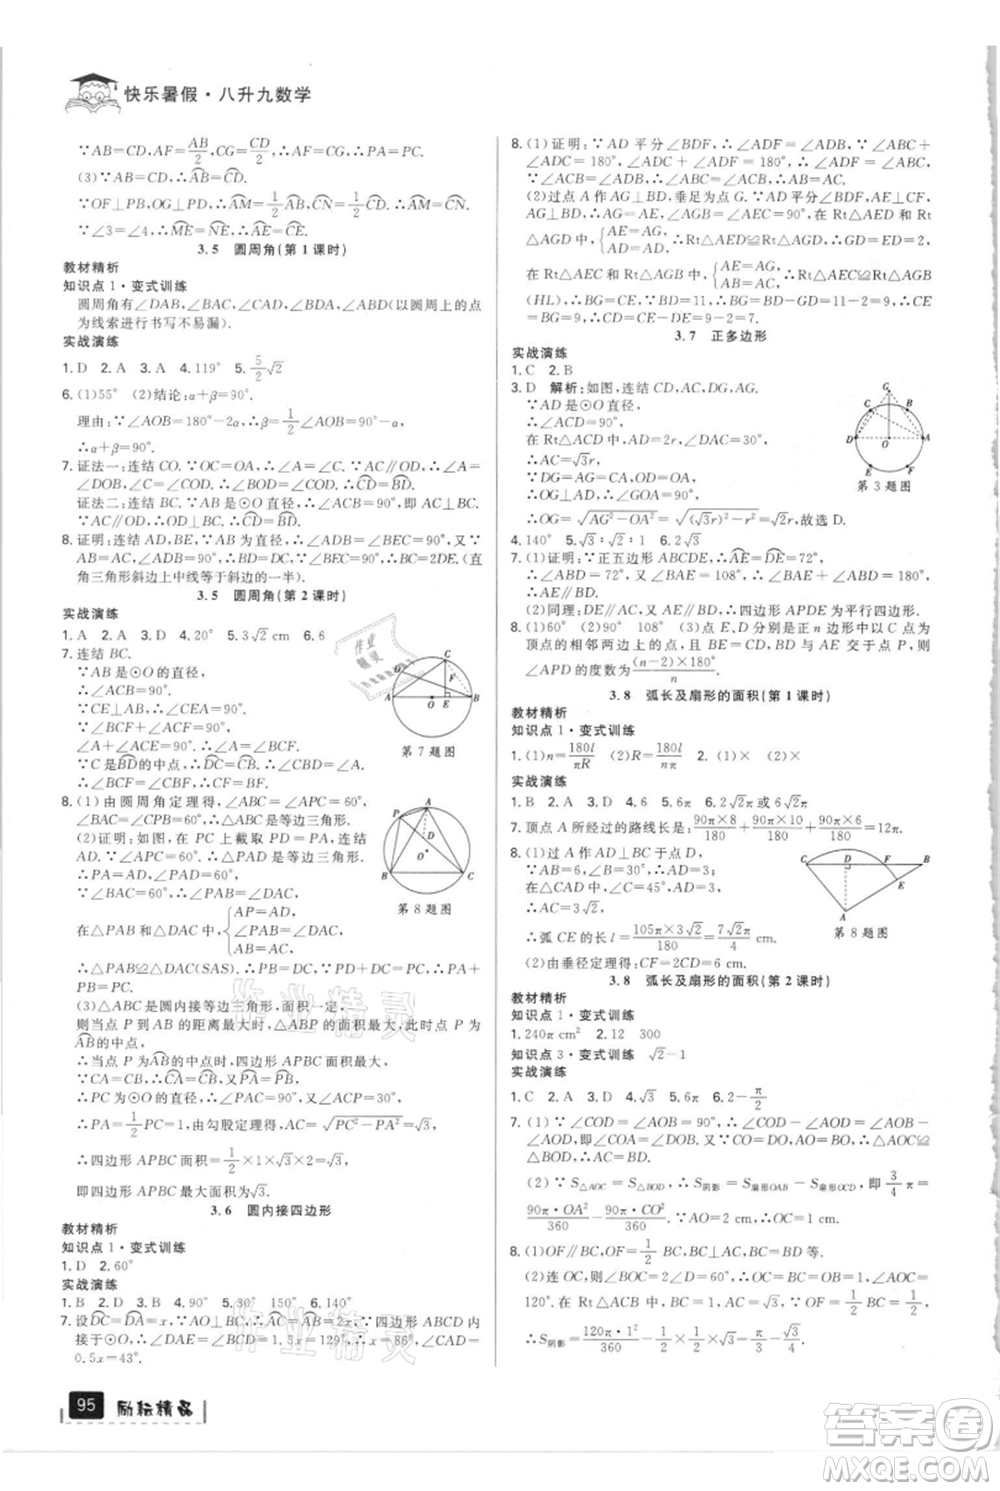 快乐暑假·八升九数学
∵AB=CD,AF=AB/2,CG=CD/2,∴AF=CG,∴PA=PC.
(3)∵AB=CD,∴AB=CD.
∵OF⊥PB,OG⊥PD,∴AM=1/2AB,CN=1/2CD,∴AM=CN.
∵∠3=∠4,∴ME=NE,∴AE=CE.
3.5 圆周角(第1课时)
教材精析
知识点1·变式训练
圆周角有∠DAC,∠DAB,∠CAB,∠ADB(以圆周上的点
为线索进行书写不易漏).
实战演练
1.D 2.A 3.A 4.119° 5.5/2√2
6.(1)55° (2)结论:α+β=90°.
理由:∵∠AOB=180°-2α,∴β=1/2∠AOB=90°-α,
∴α+β=90°.
7.证法一:连结CO.∵OC=OA,∴∠A=∠C.∵OD∥AC,∴∠A=
∠DOB,∠C=∠COD.∴∠BOD=∠COD.∴CD=BD.
证法二:连结BC.∵AB是⊙O的直径,∴∠C=90°,即AC⊥
BC.∵AC∥OD,∴OD⊥BC.∴CD=BD.
8.证明:连结AD,BE,∵AB为⊙O的直径,∴∠AEB=∠ADB=
90°.∵AB=AC,∴BD=CD.∵∠BEC=90°,∴BC=2DE.(直
角三角形斜边上中线等于斜边的一半).
3.5 圆周角(第2课时)
实战演练
1.A 2.D 3.A 4.20° 5.3√2 cm 6.6
7.连结BC.
∵AB是⊙O的直径,
∴∠ACB=90°.
∵CE⊥AB,∴∠CEA=90°.
∵∠BCF+∠ACF=90°,
∠A+∠ACF=90°,∴∠BCF=∠A.
∵C是BD的中点,∴DC=CB.
∴∠CBD=∠A.∴∠BCF=∠CBF.∴CF=BF.
第7题图
8.(1)由圆周角定理得,∠ABC=∠APC=60°,
∠BAC=∠BPC=60°,∴△ABC是等边三角形.
(2)证明:如图,在PC上截取PD=PA,连结
AD.∵∠APC=60°,∴△PAD是等边三角形.
∴PA=AD,∠PAD=60°.
∵∠BAC=60°,∴∠PAB=∠DAC.
在△PAB和△DAC中,{AP=AD,
∠PAB=∠DAC,
AB=AC.
∴△PAB≌△DAC(SAS).∴PB=DC.
∵PD=PA,∴PC=PA+PB.
第8题图
(3)∵△ABC是圆内接等边三角形,面积一定,
则当点P到AB的距离最大时,△ABP面积最大,此时点P为
AB的中点,
∴当点P为AB的中点时,四边形APBC面积最大,
∵CB=CA,∴CB=CA,又PA=PB,
∴PC为⊙O的直径,∴∠CAP=90°,
∵PA=1/2PC=1,由勾股定理得,AC=√(PC²-PA²)=√3,
∴四边形APBC面积=1/2×1×√3×2=√3,
即四边形APBC面积的最大值是√3.
3.6 圆内接四边形
教材精析
知识点1·变式训练
1.D 2.60°
实战演练
1.B 2.D 3.B 4.90° 5.30° 150° 6.140°
7.设DC=DA=x,∵AO=OB,∴AC=BC.∵四边形ABCD内
接于⊙O,∴∠D+∠B=180°.∴1.5x=129°.∴x=86°.∴∠A=
0.5x=43°.
8.(1)证明:∵AD平分∠BDF,∴∠ADF=∠ADB,∵∠ABC+
∠ADC=180°,∠ADC+∠ADF=180°,∴∠ADF=∠ABC,
∴∠ABC=∠ADB.∵∠ACB=∠ADB,∴∠ABC=∠ACB,∴AB=AC.
(2)过点A作AG⊥BD,垂足为点G.∵AD平分∠BDF,AE⊥CF,
AG⊥BD,∴AG=AE,∠AGB=∠AEC=90°,在Rt△AED和Rt
△AGD中,∵{AE=AG,
AD=AD,∴Rt△AED≌Rt△AGD,∴GD=ED=2.
在Rt△AEC和Rt△AGB中,∵{AE=AG,
AC=AB,∴Rt△AEC≌Rt△AGB
(HL),∴BG=CE,∵BD=11,∴BG=BD-GD=11-2=9,∴CE=
BG=9,∴CD=CE-DE=9-2=7.
3.7 正多边形
实战演练
1.C 2.B
3.D 解析:如图,连结CD,AC,DG,AG.
∵AD是⊙O直径,
∴∠ACD=90°.
在Rt△ACD中,AD=2r,∠DAC=30°,
∴AC=√3r.
∵DG=AG=CA,OD=OA,
∴OG⊥AD,∴∠GOA=90°.
第3题图
∴OG=√(AG²-OA²)=√((√3r)²-r²)=√2r,故选D.
4.140° 5.√3:√2:1 6.2√3
7.(1)证明:∵正五边形ABCDE,∴AE=DE=CD,
∴∠ABD=72°,又∠BAE=108°,∴∠ABD+∠BAE=180°,
∴BD∥AE.
(2)同理:DE∥AC,又DE=AE,∴四边形APDE为平行四边形.
8.(1)60° (2)90° 108° (3)点E,D是正n边形中以C点为顶
点的相邻两边上的点,且BE=CD,BD与AE交于点P,
∠APD的度数为(n-2)×180°/n.
3.8 弧长及扇形的面积(第1课时)
教材精析
知识点1·变式训练
1.(1)n=180l/πR (2)R=180l/nπ 2.(1)× (2)×
实战演练
1.B 2.A 3.C 4.6 5.4π 6.2√2π或√2π
7.顶点A所经过的路线长是:90π×8/180+90π×10/180+90π×6/180=12π.
8.(1)过A作AD⊥BC于点D,
∵AB=6,∠B=30°,∴AD=3,
在△ADC中,∠C=45°,AD=3,
∴AC=3√2.
∴弧CE的长l=105π×3√2/180=7√2π/4 cm.
第8题图
(2)由垂径定理得,CF=2CD=6 cm.
3.8 弧长及扇形的面积(第2课时)
教材精析
知识点1·变式训练
1.240π cm² 2.12 300
知识点3·变式训练 √2-1
实战演练
1.C 2.A 3.D 4.60° 5.6π 6.2-π/2
7.(1)∵∠COD=∠AOB=90°,∴∠COD-∠AOD=∠AOB-
∠AOD.即∠COA=∠DOB.又AO=BO,CO=DO,∴△AOC≌
△BOD.
(2)∵S△AOC=S△BOD,∴S阴影=S扇形OAB-S扇形OCD,即3/4π=
90π·2²/360-90π·CO²/360,∴CO=1 cm.
8.(1)OF∥BC,OF=1/2BC,AF=CF,AC⊥BC等.
(2)连OC,∵BC=1,∴AB=2,AC=√3,OF=1/2,∠AOC=
120°.
∴S阴影=120π·1²/360-1/2×1/2×√3=π/3-√3/4.
95 励耘精品
作业精灵
作业精灵
作业精灵
答案圈
MXQE.COM